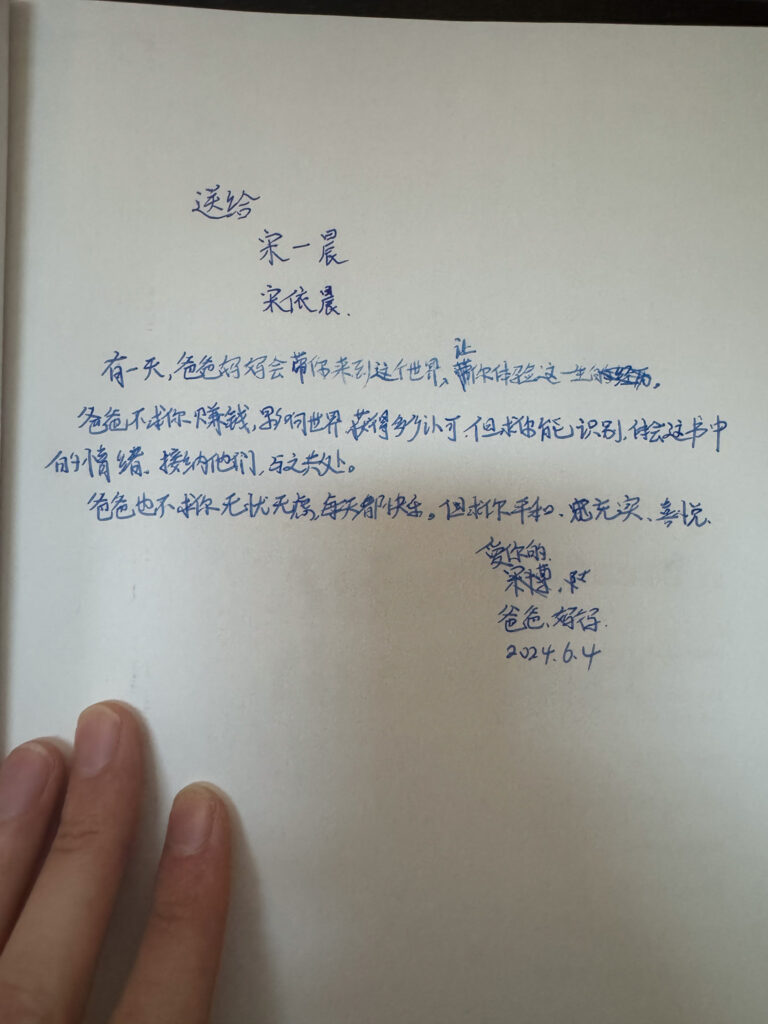 送给
宋一晨
宋依晨.
有一天,爸爸妈妈会带你来到这个世界、让你体验这一生
爸爸不求你赚钱,影响世界,获得多少认可,但求你能识别,体会这书中
的情绪、接纳他们,与之共处。
爸爸也不求你无忧无虑,每天都快乐。但求你平和、充实、喜悦.
爱你的.
爸爸、妈妈.
2024.6.4